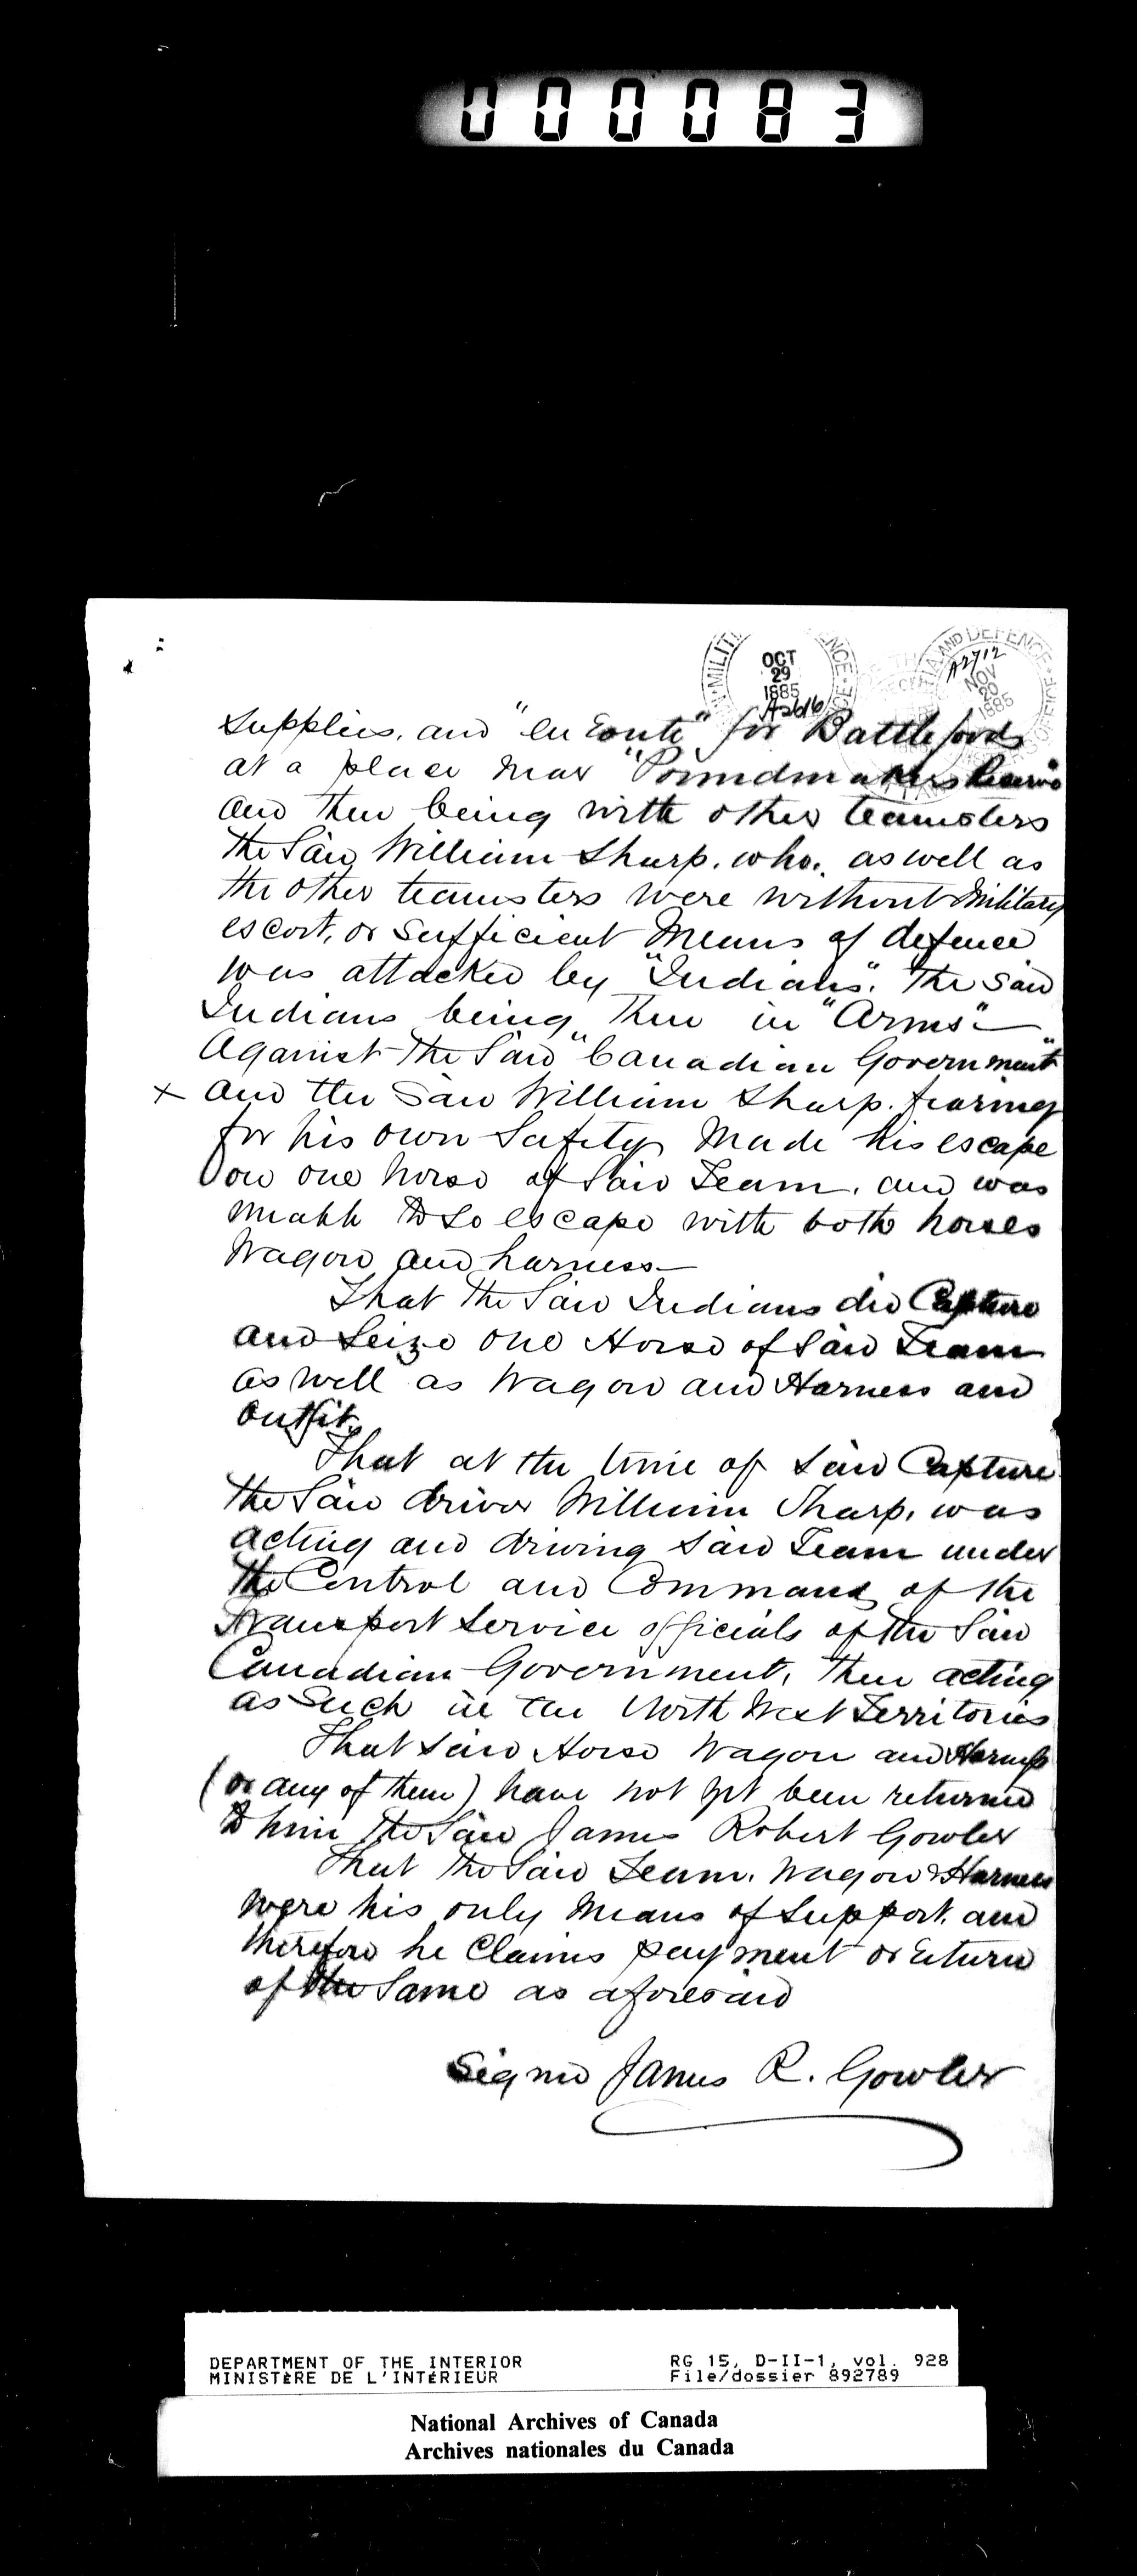 000083
MILIT
OCT
29
1885
A2616
AND DEFENCE
A2712
NOV
20
1885
Supplies, and "en Route" for Battleford
at a place near "Poundmakers
and then being with other teamsters
the Said William Sharp. who, as well as
the other teamsters were without Military
escort, or Sufficient Means of defence
was attacked by "Indians". The said
Indians being then in "Arms"
Against the Said "Canadian Government"
x and the Said William Sharp. fearing
for his own Safety Made his escape
on one horse of Said Team, and was
unable to so escape with both horses
Wagon and harness
That the Said Indians did Capture
and Seize one Horse of Said Team
as well as Wagon and Harness and
Outfit.
That at the time of Said Capture
the Said driver William Sharp, was
acting and driving Said Team under
the Control and Command of the
Transport Service officials of the Said
Canadian Government, then acting
as Such in the North West Territories
That Said Horse Wagon and Harness
(or any of them) have not yet been returned
to him the Said James Robert Gowler
That the Said Team. Wagon & Harness
were his only Means of Support, and
therefore he Claims payment or return
of the Same as aforesaid
Signed James R. Gowler
DEPARTMENT OF THE INTERIOR
MINISTÈRE DE L'INTÉRIEUR
RG 15, D-II-1, vol. 928
File/dossier 892789
National Archives of Canada
Archives nationales du Canada